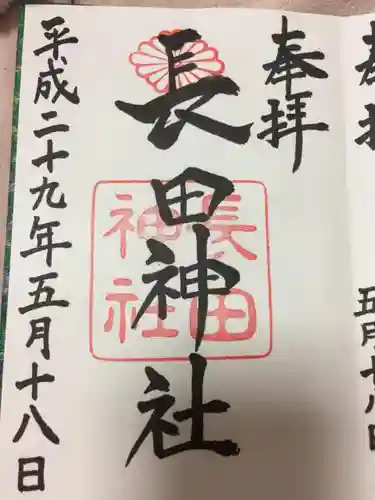 奉拝
長田神社
長田
神社
平成二十九年五月十八日
五月十八日